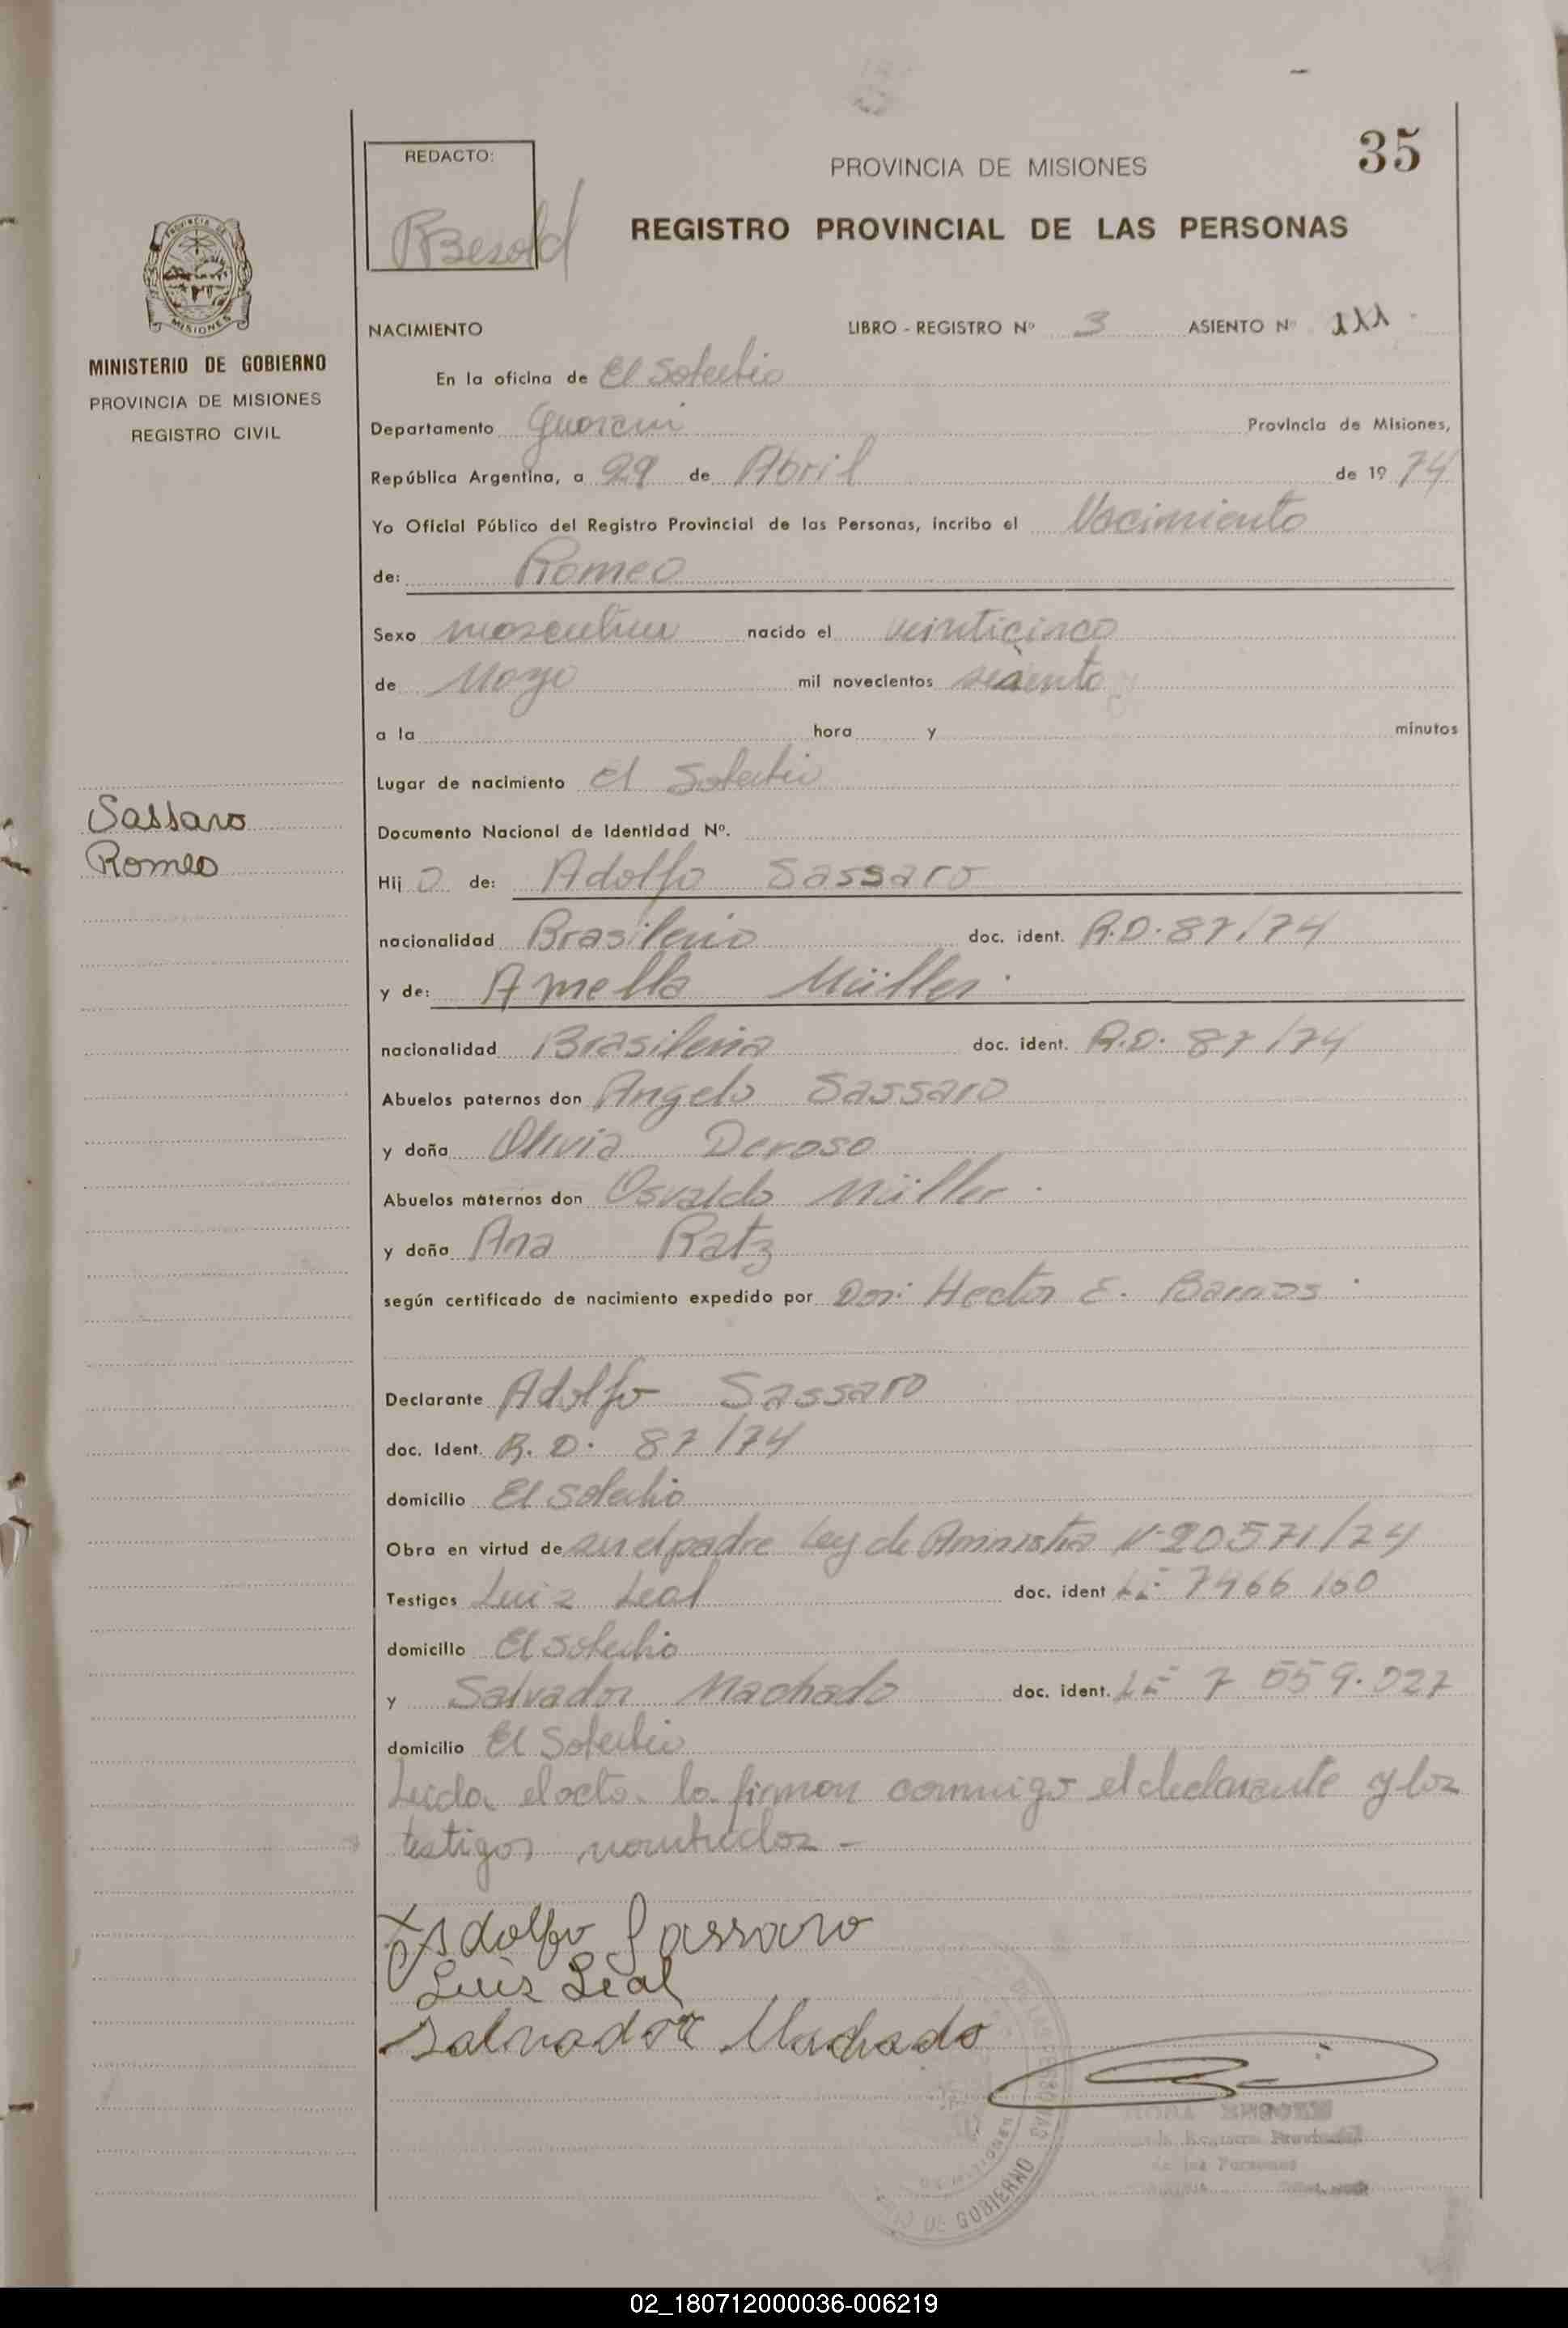 35
REDACTO:
PROVINCIA DE MISIONES
RBesold
REGISTRO PROVINCIAL DE LAS PERSONAS
PROVINCIA DE
MISIONES
MINISTERIO DE GOBIERNO
PROVINCIA DE MISIONES
REGISTRO CIVIL
NACIMIENTO LIBRO - REGISTRO Nº 3 ASIENTO Nº 111.
En la oficina de El Soberbio
Departamento Guarani Provincia de Misiones,
República Argentina, a 29 de Abril de 1974
Yo Oficial Público del Registro Provincial de las Personas, incribo el Nacimiento
de: Romeo
Sexo masculino nacido el veinticinco
de Mayo mil novecientos
a la hora y minutos
Lugar de nacimiento El Soberbio
Sassaro
Romeo
Documento Nacional de Identidad Nº.
Hijo de: Adolfo Sassaro
nacionalidad Brasileño doc. ident. R.D. 87/74
y de: Amella Müller.
nacionalidad Brasileña doc. ident. R.D. 87/74
Abuelos paternos don Angelo Sassaro
y doña Olivia Deroso
Abuelos maternos don Osvaldo Müller.
y doña Ana Ratz
según certificado de nacimiento expedido por Hector E. Barrios.
Declarante Adolfo Sassaro
doc. Ident. R.D. 87/74
domicilio El Soberbio
Obra en virtud de ser el padre Ley de Amnistia Nº 20571/74
Testigos Luiz Leal doc. ident LE 7966160
domicilio El Soberbio
y Salvador Machado doc. ident. LE 7 559.027
domicilio El Soberbio
Leida el acta la firman conmigo el declarante y los
testigos nombrados -
Adolfo Sassaro
Luiz Leal
Salvador Machado
DE GOBIERNO
de las Personas
02_180712000036-006219